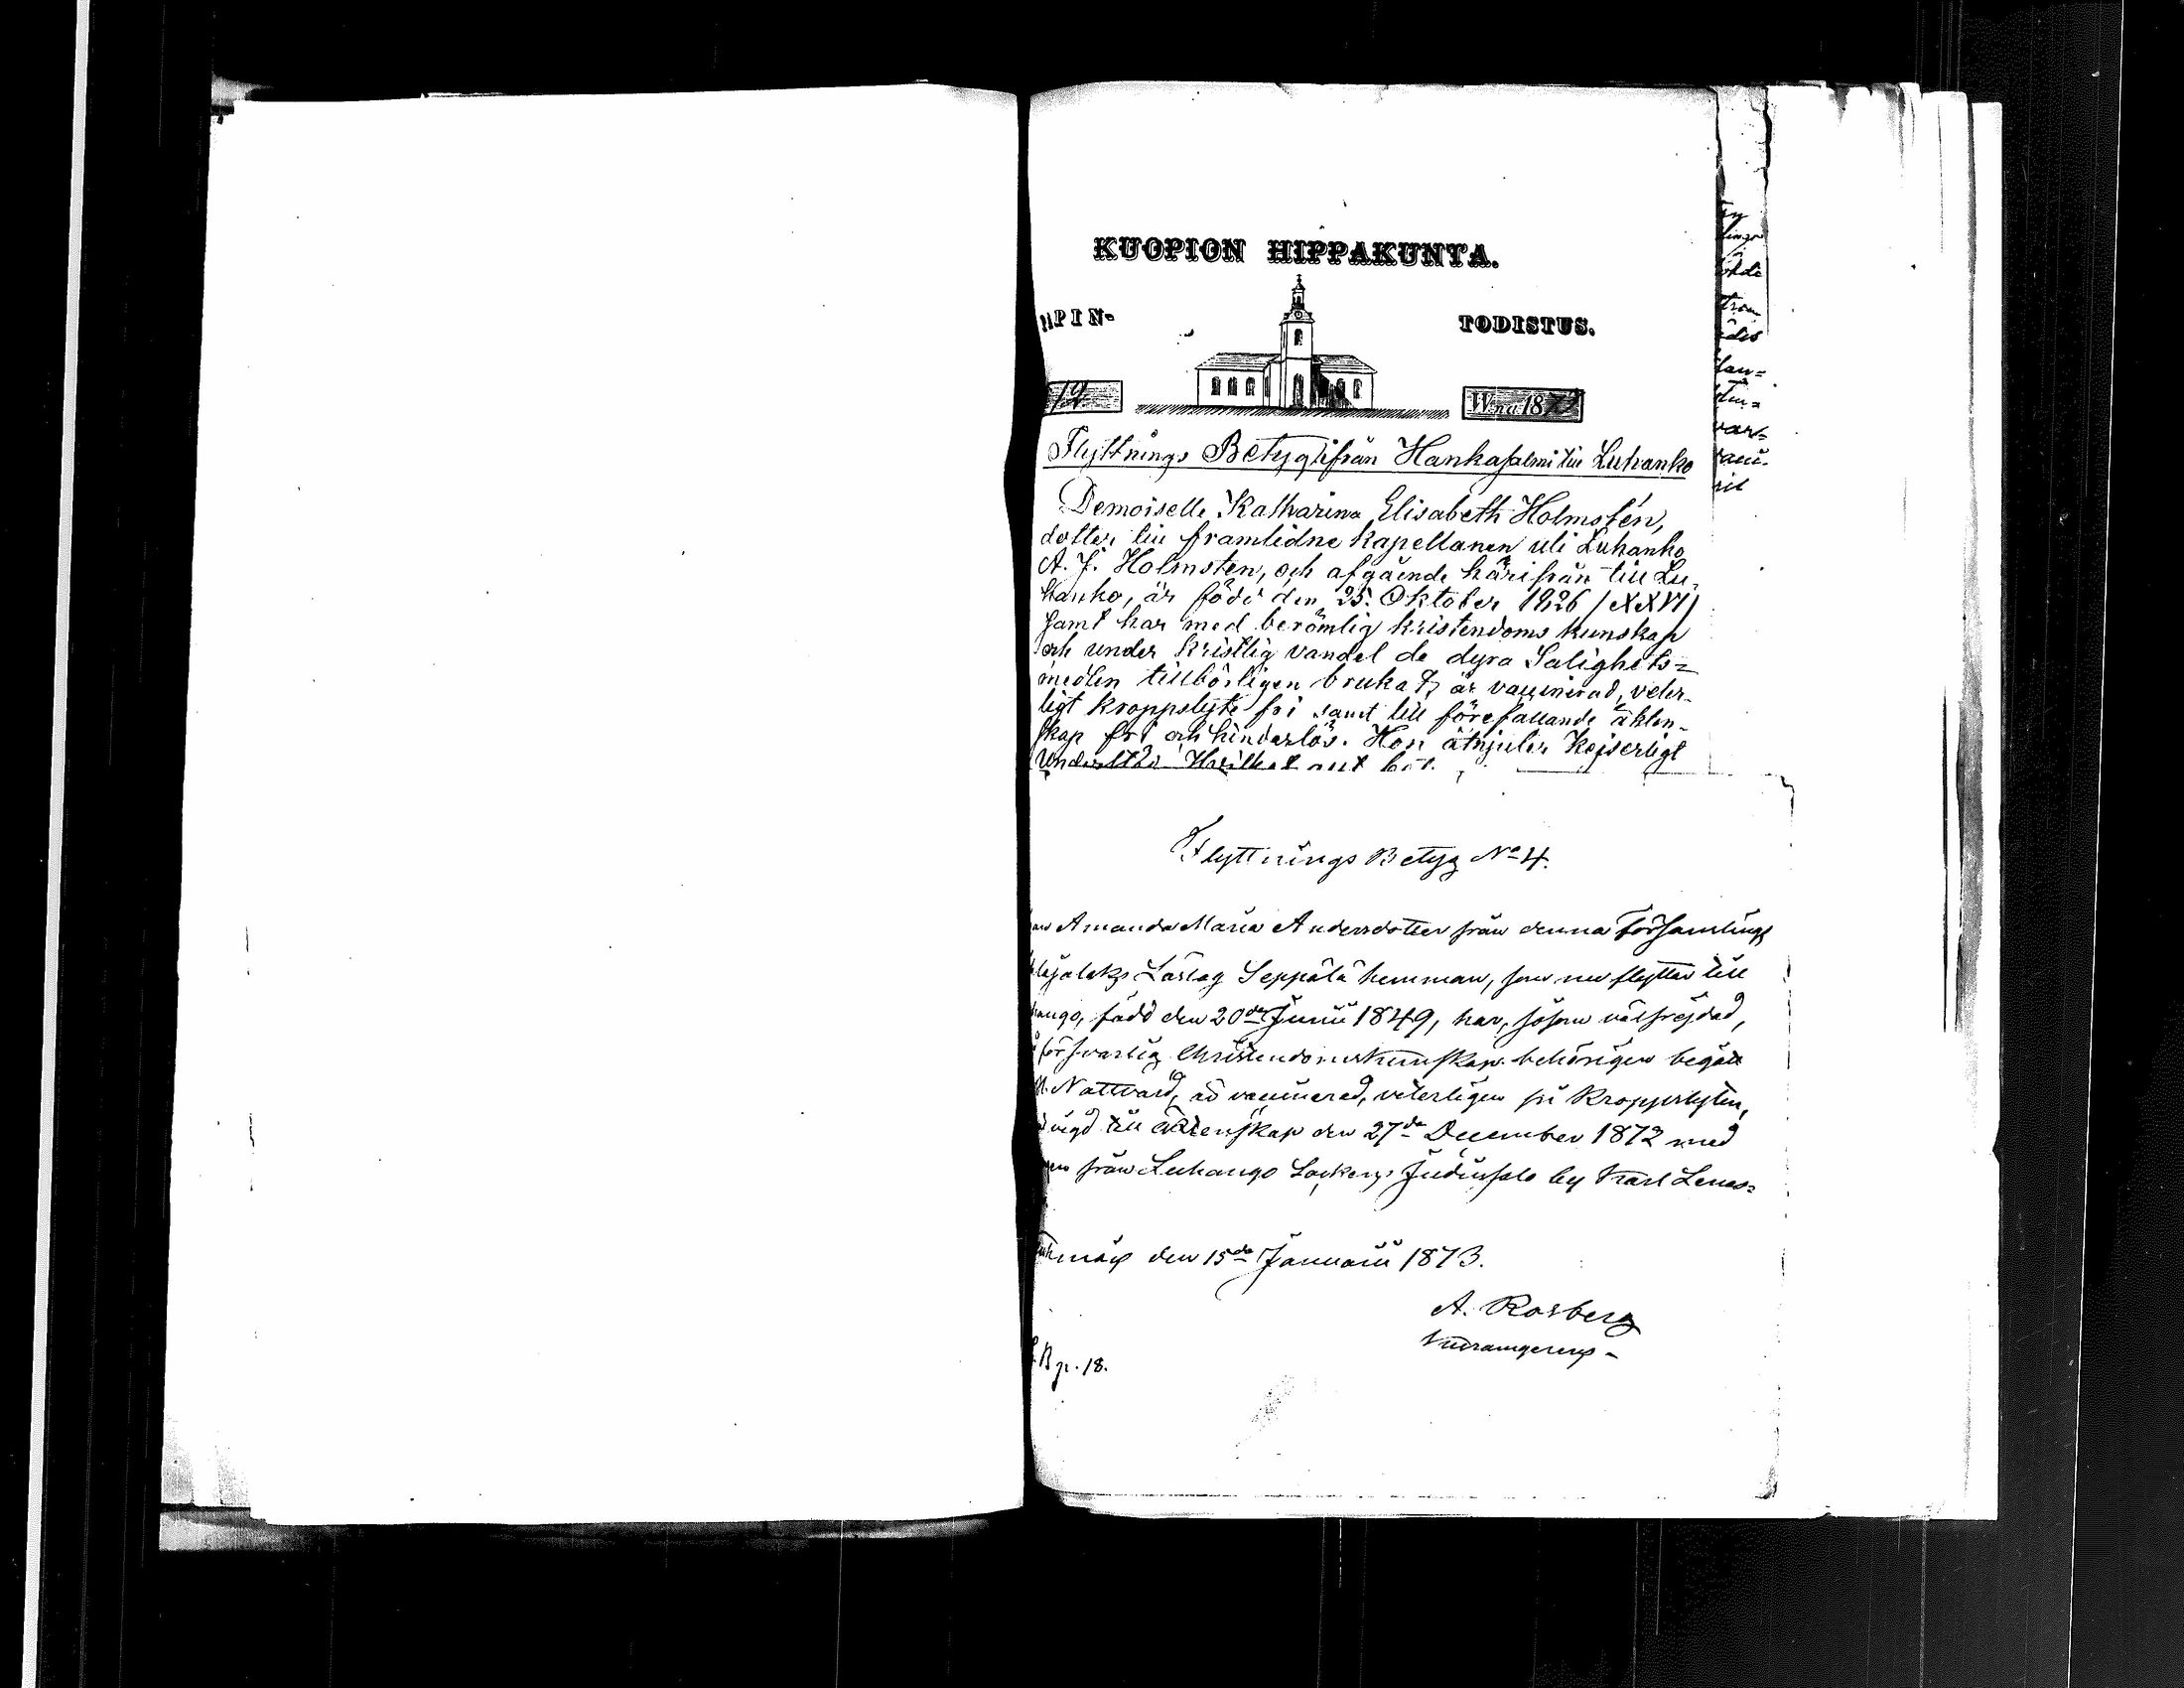 KUOPION HIPPAKUNTA.
PIN- TODISTUS.
12 W:na 1872
Flyttnings Betyg ifrån Hankasalmi till Luhanko
Demoiselle Katharina Elisabeth Holmstén,
dotter till framlidne kapellanen uti Luhanko
A. J. Holmsten, och afgående härifrån till Lu-
hanko, är född den 25. Oktober 1826 /XXVI/
samt har med berömlig kristendoms kunskap
och under kristlig vandel de dyra Salighets=
medlen tillbörligen brukat, är vaccinerad, veter-
ligt kroppslyte fri samt till förefallande äkten-
skap fri och hinderlös. Hon åtnjuter Kejserligt
Hvilket
Flyttnings Betyg No 4.
Amanda Maria Andersdotter från denna Församlings
Seppälä hemman, som nu flyttar till
hango, född den 20de Junii 1849, har, såsom välfrejdad,
försvarlig Christendomskunskap behörigen begått
H. Nattvard, är vaccinerad, veterligen fri Kroppslyten,
vigd till äktenskap den 27de December 1872 med
från Luhango by Karl Lenas=
den 15de Januarii 1873.
A. Rosberg
B p. 18.